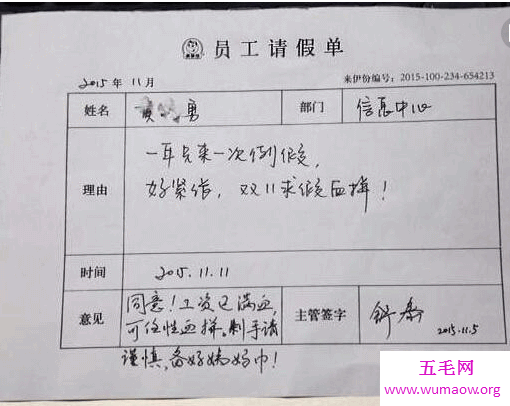 员工请假单
2015年 11月 来伊份编号：2015-100-234-654213
姓名 黄 勇 部门 信息中心
一年只来一次的假,
理由 好紧张, 双11求假血拼!
时间 2015.11.11
同意!工资已满血,
意见 可任性血拼。剁手请 主管签字 舒春
谨慎,备好妈妈巾! 2015.11.5
五毛网
www.wumaow.org